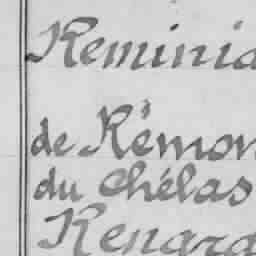 Reminia
de Rémon
du Chélas
Renard